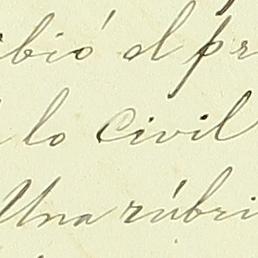 ibió el pr
lo Civil
Una rúbri